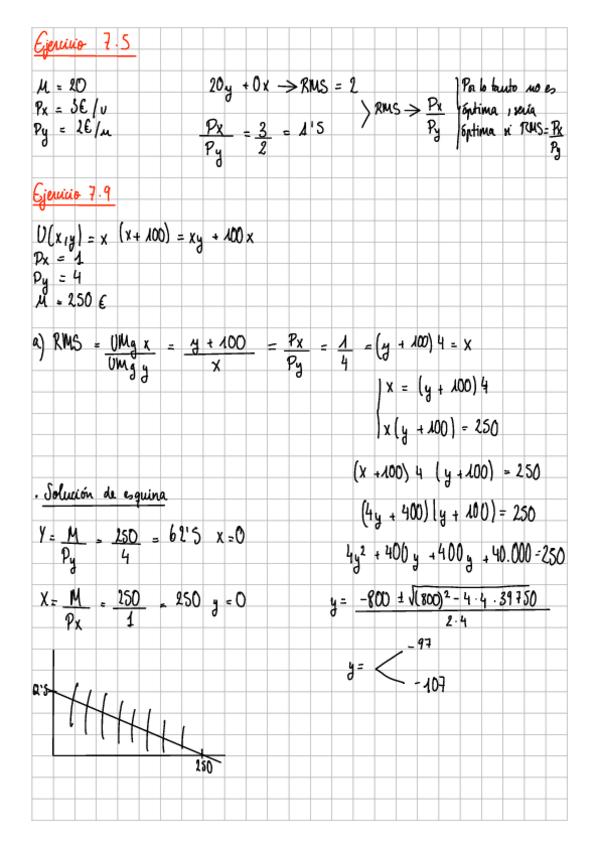 Ejercicio 7.5
M = 20
Px = 3€/u
Py = 2€/u
20y + 0x → RMS = 2
Px/Py = 3/2 = 1'5
RMS → Px/Py
Por lo tanto no es
óptima, sería
óptima si RMS = Px/Py
Ejercicio 7.9
U(x,y) = x (x+100) = xy + 100x
Px = 1
Py = 4
M = 250 €
a) RMS = UMg x/UMg y = y + 100/x = Px/Py = 1/4 = (y + 100) 4 = x
x = (y + 100) 4
x(y + 100) = 250
(x +100) 4 (y +100) = 250
(4y + 400)(y + 100) = 250
4y² + 400y + 400y + 40.000 = 250
y = -800 ± √(800)² - 4·4·39750/2·4
y = -97
-107
. Solución de esquina
Y = M/Py = 250/4 = 62'5 x=0
X = M/Px = 250/1 = 250 y=0
250